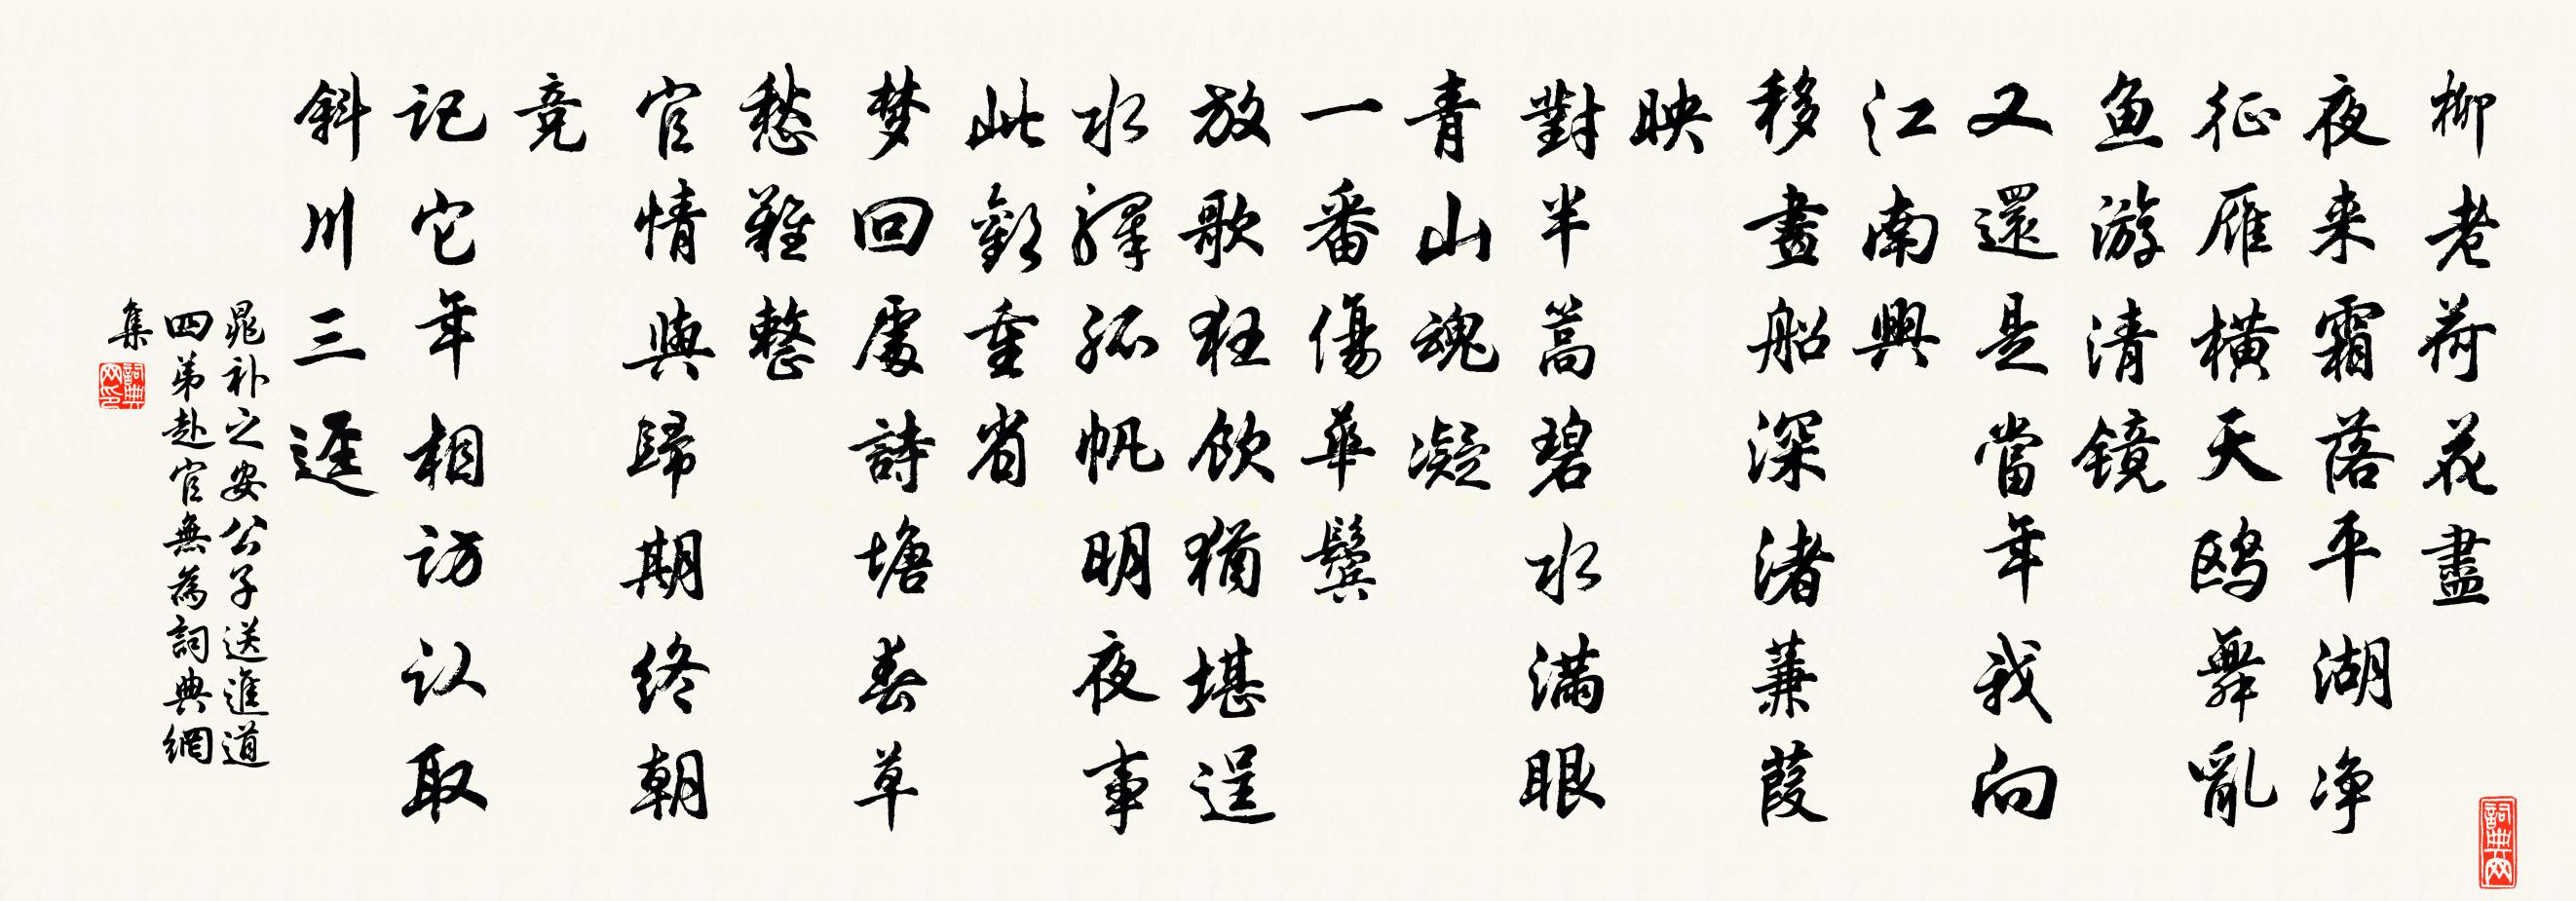 柳老荷花盡
夜来霜落平湖净
征雁橫天鸥舞亂
魚游清镜
又還是當年我向
江南興
移畫船深渚蒹葭
映
對半篙碧水滿眼
青山魂凝
一番傷華鬓
放歌狂飲猶堪逞
水驛孤帆明夜事
此歡重省
梦回處詩塘春草
愁難整
官情與歸期终朝
竞
记它年相访认取
斜川三逕
晁补之安公子送進道
四弟赴官無為詞典網
集
詞典网印
詞典网